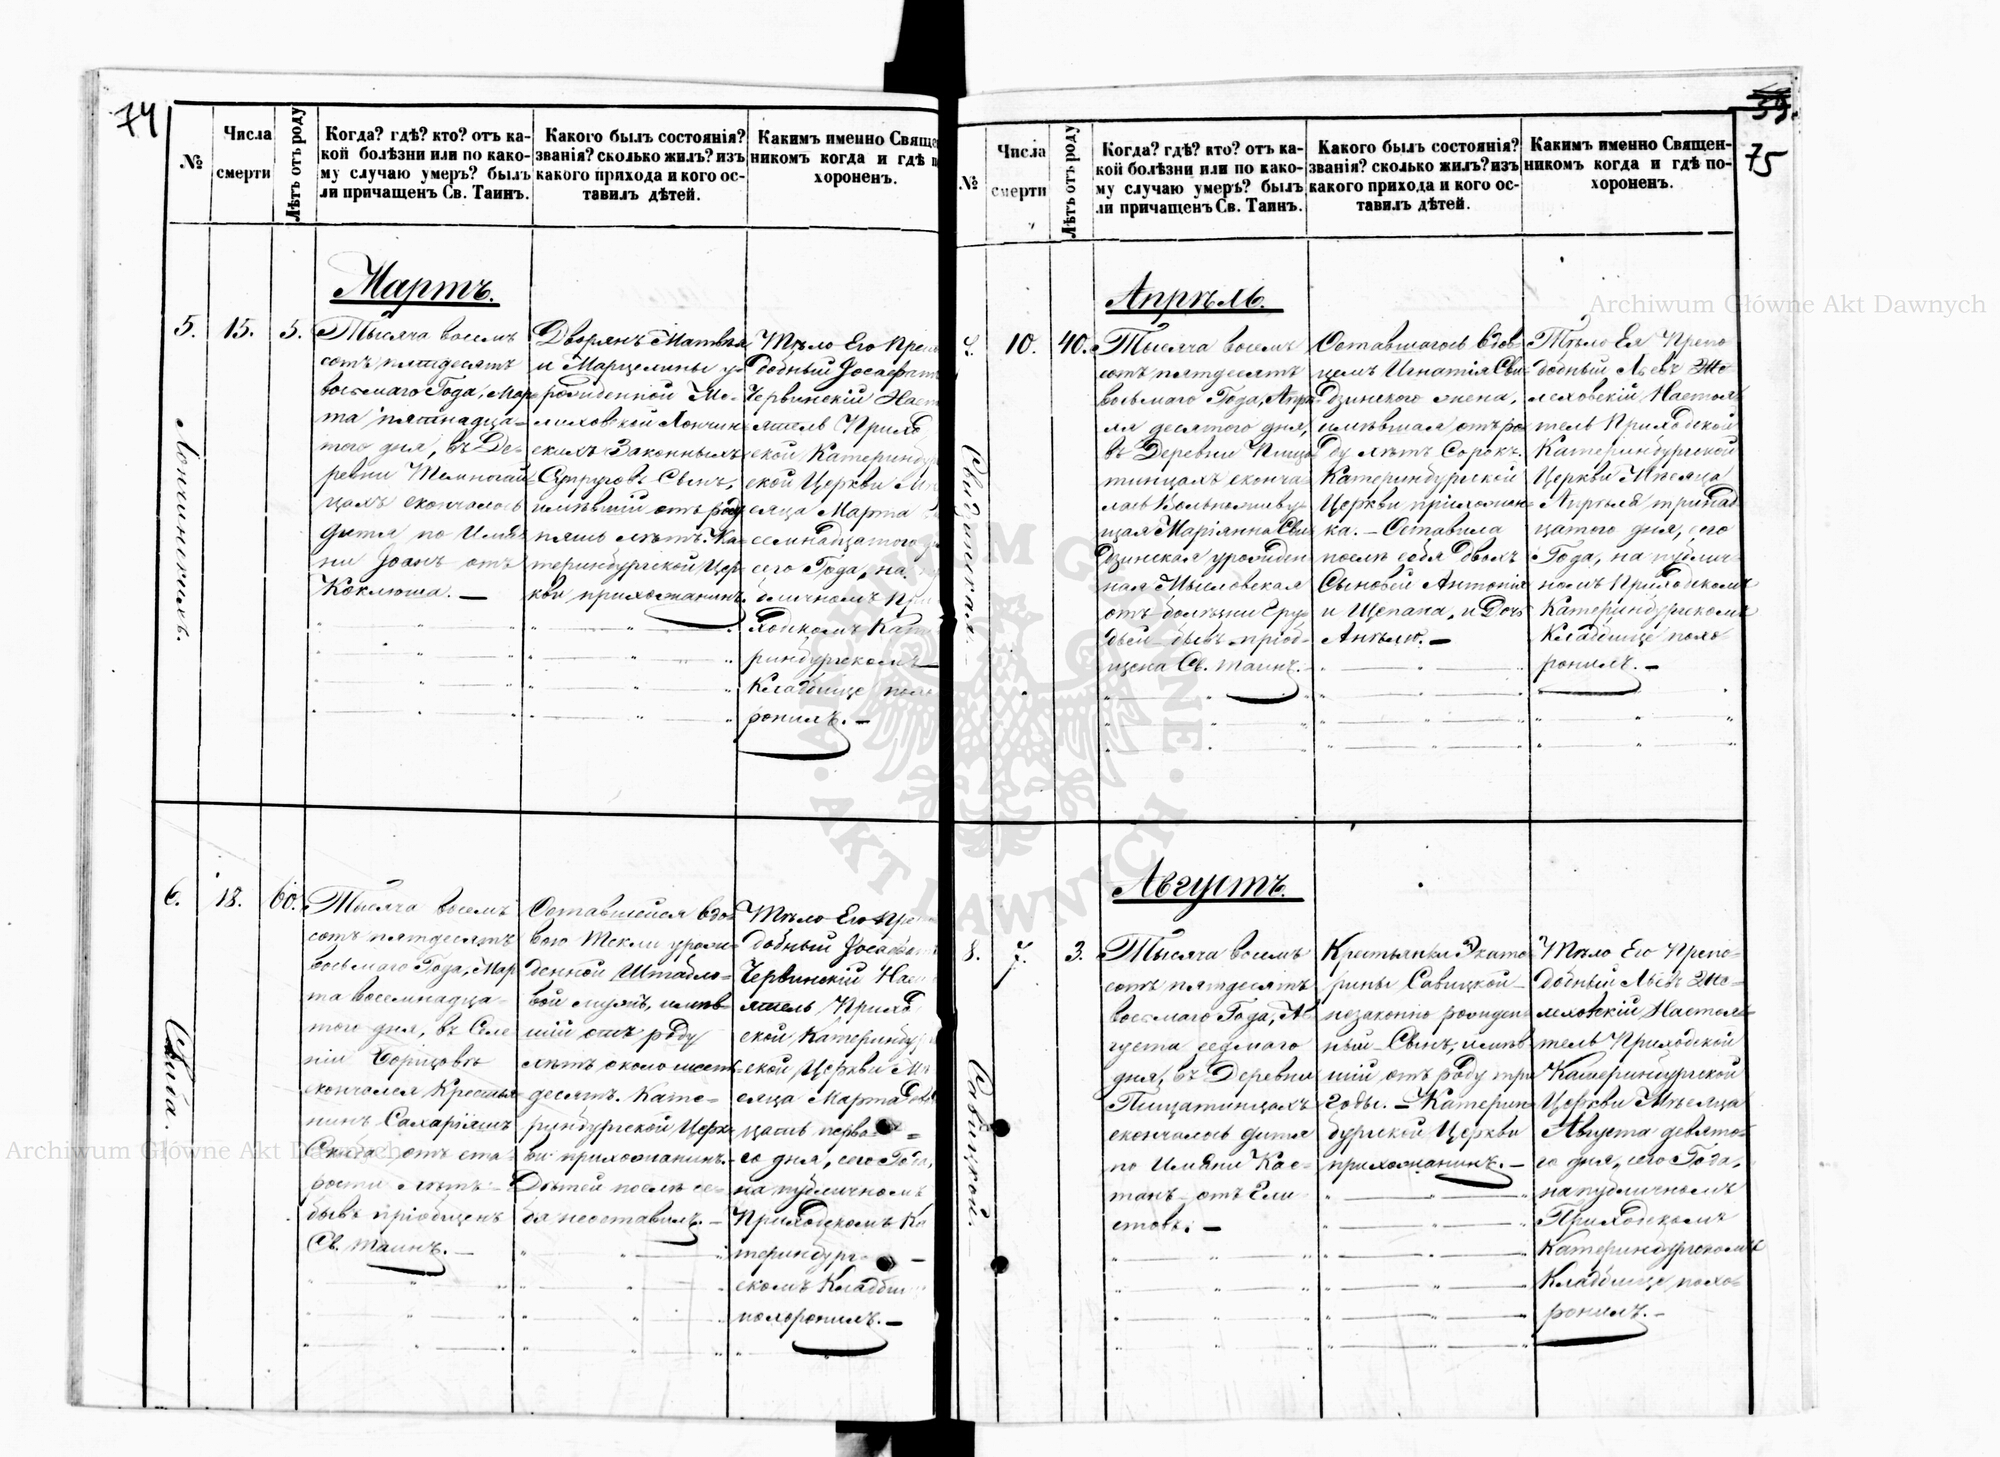 74
№
Числа
смерти
Лѣтъ отъ роду
Когда? гдѣ? кто? отъ ка-
кой болѣзни или по како-
му случаю умеръ? былъ
ли причащенъ Св. Таинъ.
Какого былъ состоянія?
званія? сколько жилъ? изъ
какого прихода и кого ос-
тавилъ дѣтей.
Какимъ именно Свяще
никомъ когда и гдѣ п
хороненъ.
Мартъ.
5.
15.
5.
Лопчинскихъ.
Тысяча восемъ
сотъ пятдесятъ
восьмаго Года, Мар-
та пятнадца-
того дня, въ Де-
ревни
цахъ скончалось
дитя по Имя-
ни Іоанъ отъ
Коклюша. —
Дворянъ Матвѣя
и Марцелины у-
рожденной Ме-
леховской Лопчин
скихъ Законныхъ
Супруговъ Сынъ,
имѣвшій отъ роду
пять лѣтъ. Ка-
теринбургской Цер-
кви прихожанинъ.
Тѣло Его Преп
добный Іосафатъ
Червинскій Наст
ятель Приход
ской Катеринбур
ской Церкви Мѣ
сяца Марта
семнадцатого
сего Года, на
бличномъ При
ходскомъ Кате
ринбургскомъ
Кладбище похо
ронилъ. —
6.
18.
60.
Скиба.
Тысяча восемъ
сотъ пятдесятъ
восьмаго Года, Мар
та восемнадца-
того дня, въ Селе
ніи Борщовкѣ
скончался Крестья
нинъ Сахаріяшъ
Скиба отъ ста-
рости лѣтъ
бывъ пріобщенъ
Св. таинъ. —
Оставшейся вдо-
вою Текли урож-
денной Штабло-
вой мужъ, имѣв
шій отъ роду
лѣтъ около шесть
десятъ. Кате-
ринбургской Церк
ви прихожанинъ.
Дѣтей послѣ се-
бя неоставилъ. —
Тѣло Его Преп
добный Іосафатъ
Червинскій Нас
ятель Прихо
ской Катеринбу
ской Церкви Мѣ
сяца Марта два
цать перва-
го дня, сего Года,
на публичномъ
Приходскомъ Ка
теринбург-
скомъ Кладби
похоронилъ. —
39.
75
№
Числа
смерти
Лѣтъ отъ роду
Когда? гдѣ? кто? отъ ка-
кой болѣзни или по како-
му случаю умеръ? былъ
ли причащенъ Св. Таинъ.
Какого былъ состоянія?
званія? сколько жилъ? изъ
какого прихода и кого ос-
тавилъ дѣтей.
Какимъ именно Священ-
никомъ когда и гдѣ по-
хороненъ.
Апрѣль.
10.
40.
Свидзинская.
Тысяча восемъ
сотъ пятдесятъ
восьмаго Года, Апрѣ-
ля десятого дня,
въ Деревни Пища
тинцахъ сконча
лась Вольноживу
щая Маріянна Сви
дзинская урожден
ная Мысловская
отъ болѣзни Гру
дьей бывъ пріоб-
щена Св. таинъ. —
Оставшагось вдов
цемъ Игнатія Сви-
дзинского жена,
имѣвшая отъ ро
ду лѣтъ Сорокъ.
Катеринбургской
Церкви прихожан
ка. — Оставила
послѣ себя двохъ
Сыновей Антонія
и Щепана, и Дочь
Анѣлю. —
Тѣло Ея Препо
добный Львъ Же
леховскій Настоя
тель Приходской
Катеринбургской
Церкви Мѣсяца
Апрѣля тринад
цатого дня, сего
Года, на публич-
номъ Приходскомъ
Катеринбургскомъ
Кладбище похо
ронилъ. —
Августъ.
8.
7.
3.
Савицкой.
Тысяча восемъ
сотъ пятдесятъ
восьмаго Года, Ав
густа седмого
дня, въ Деревни
Пищатинцахъ
скончалось дитя
по Имяни Кае-
танъ отъ Гли
стовъ. —
Крестьянки Экате
рины Савицкой
незаконно рожден
ный Сынъ, имѣв
шій отъ роду три
годы. — Катерин
бургской Церкви
прихожанинъ. —
Тѣло Его Препо-
добный Львъ Же-
леховскій Настоя-
тель Приходской
Катеринбургской
Церкви Мѣсяца
Августа девято-
го дня, сего Года,
на публичномъ
Приходскомъ
Катеринбургскомъ
Кладбище похо-
ронилъ. —
Archiwum Główne Akt Dawnych
Archiwum Główne Akt Dawnych
ARCHIWUM GŁÓWNE · AKT DAWNYCH ·